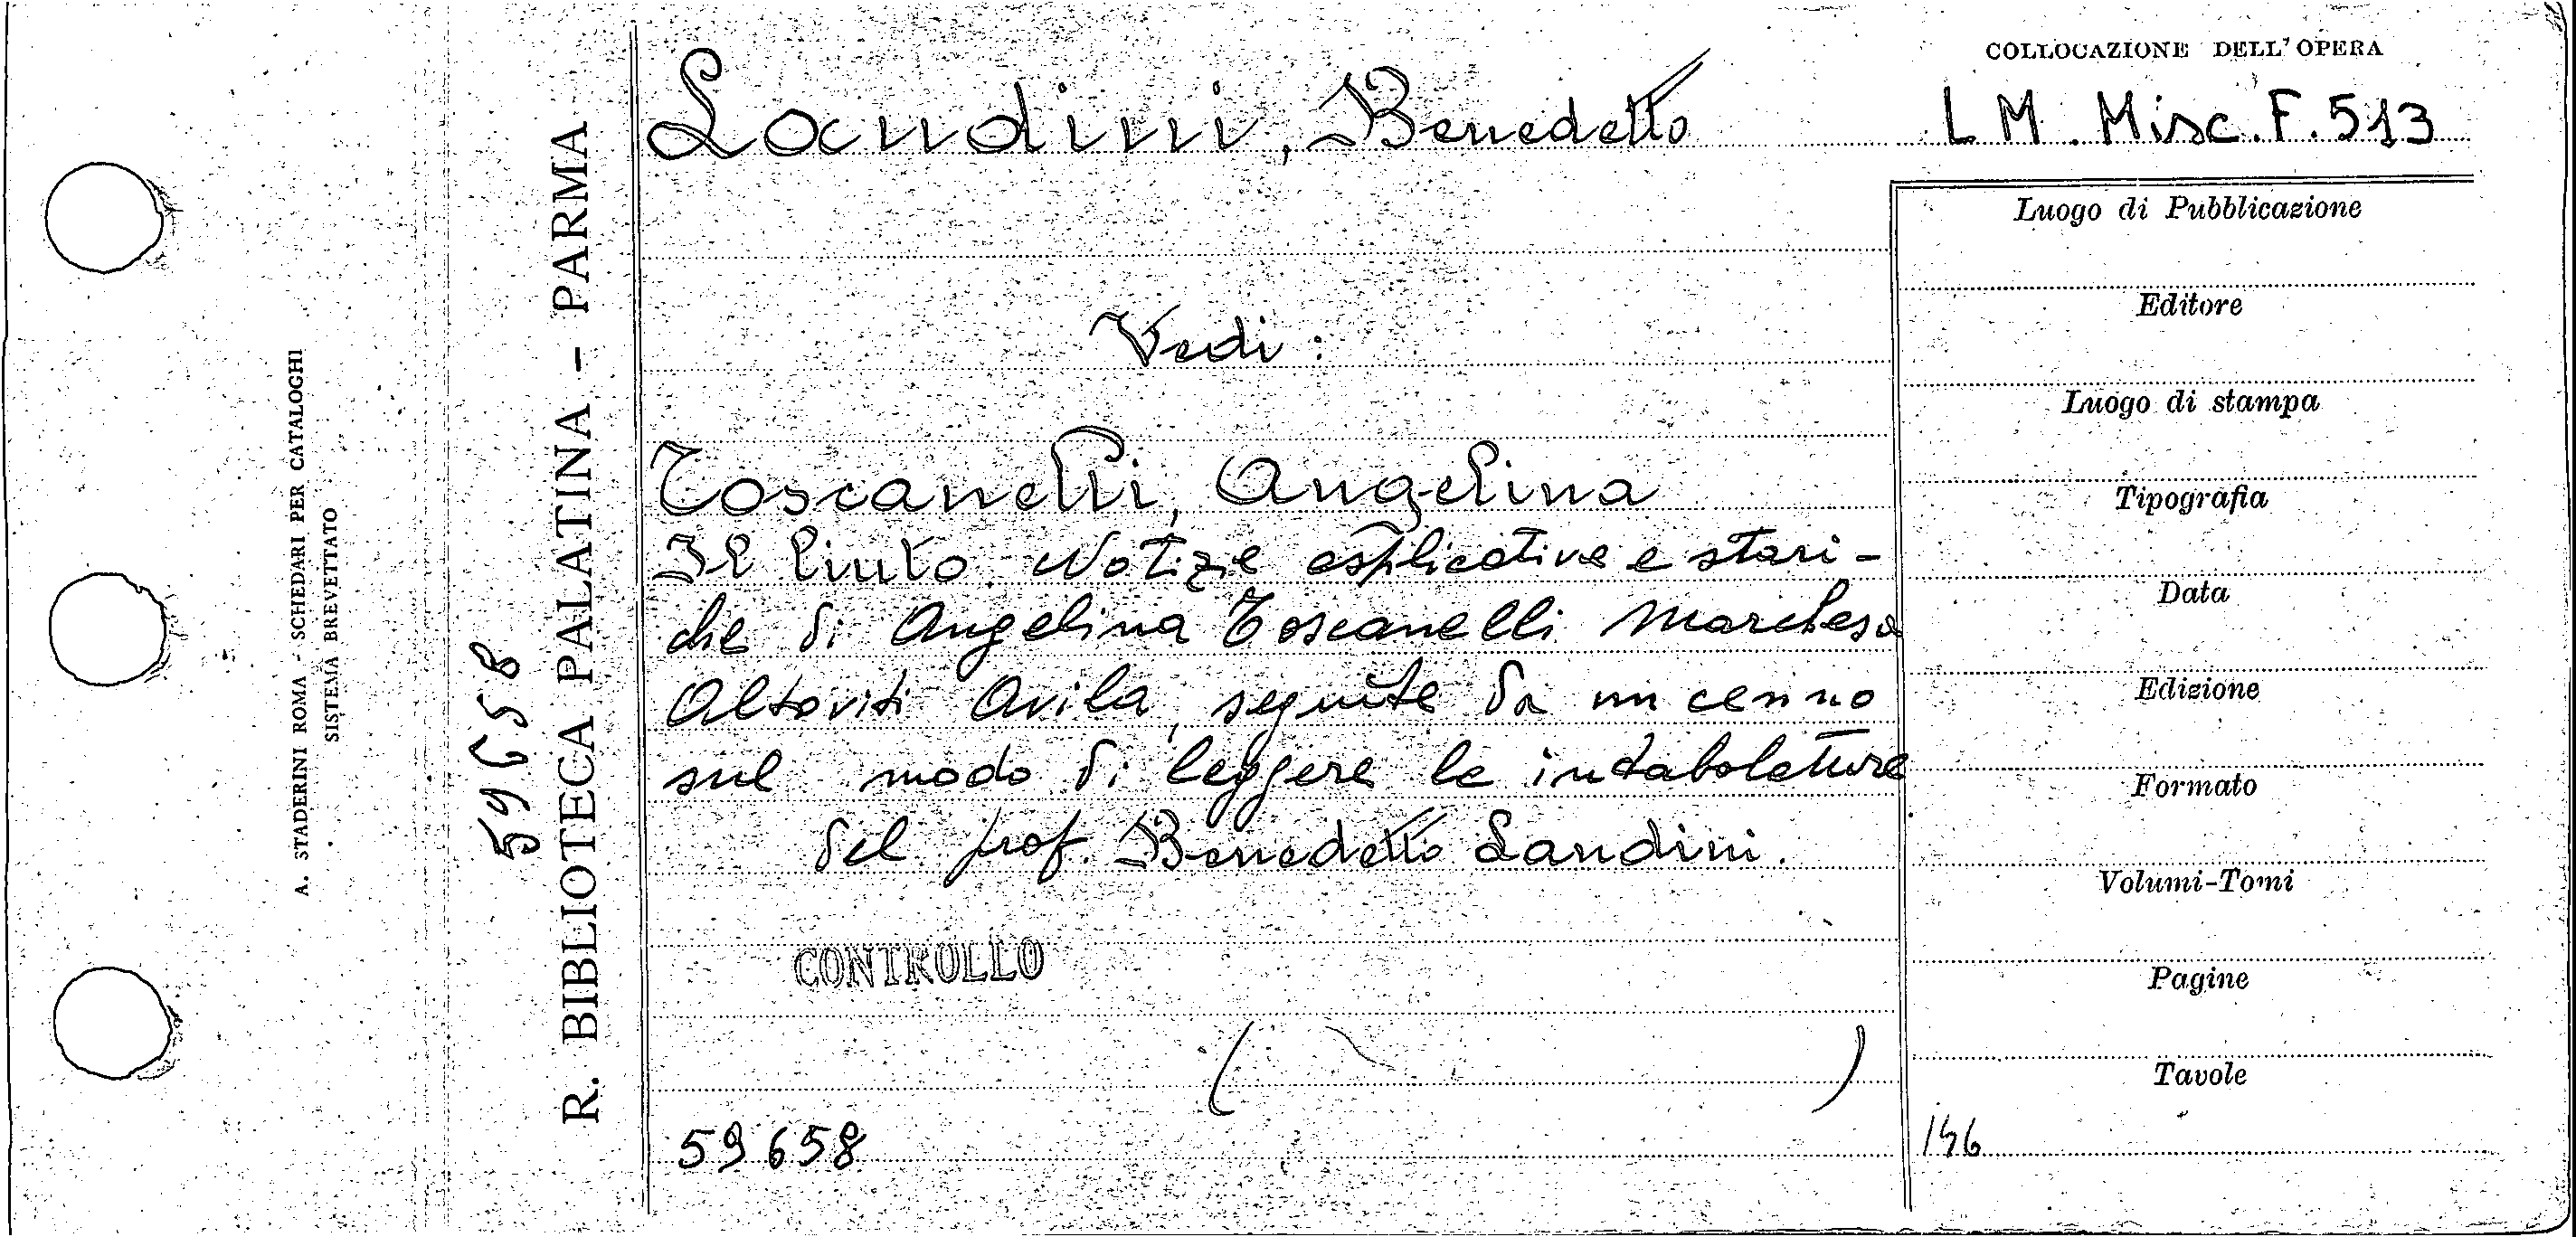 Landini, Benedetto
COLLOCAZIONE DELL'OPERA
L M. Misc. F. 513
Vedi:
Toscanelli, Angelina
Il liuto. Notizie esplicative e stori-
che di Angelina Toscanelli Marchesa
Altoviti Avila, seguite da un cenno
sul modo di leggere le intabolature
del prof. Benedetto Landini.
CONTROLLO
( )
59658
Luogo di Pubblicazione
Editore
Luogo di stampa
Tipografia
Data
Edizione
Formato
Volumi-Tomi
Pagine
Tavole
146
R. BIBLIOTECA PALATINA - PARMA
59658
A. STADERINI ROMA - SCHEDARI PER CATALOGHI
SISTEMA BREVETTATO